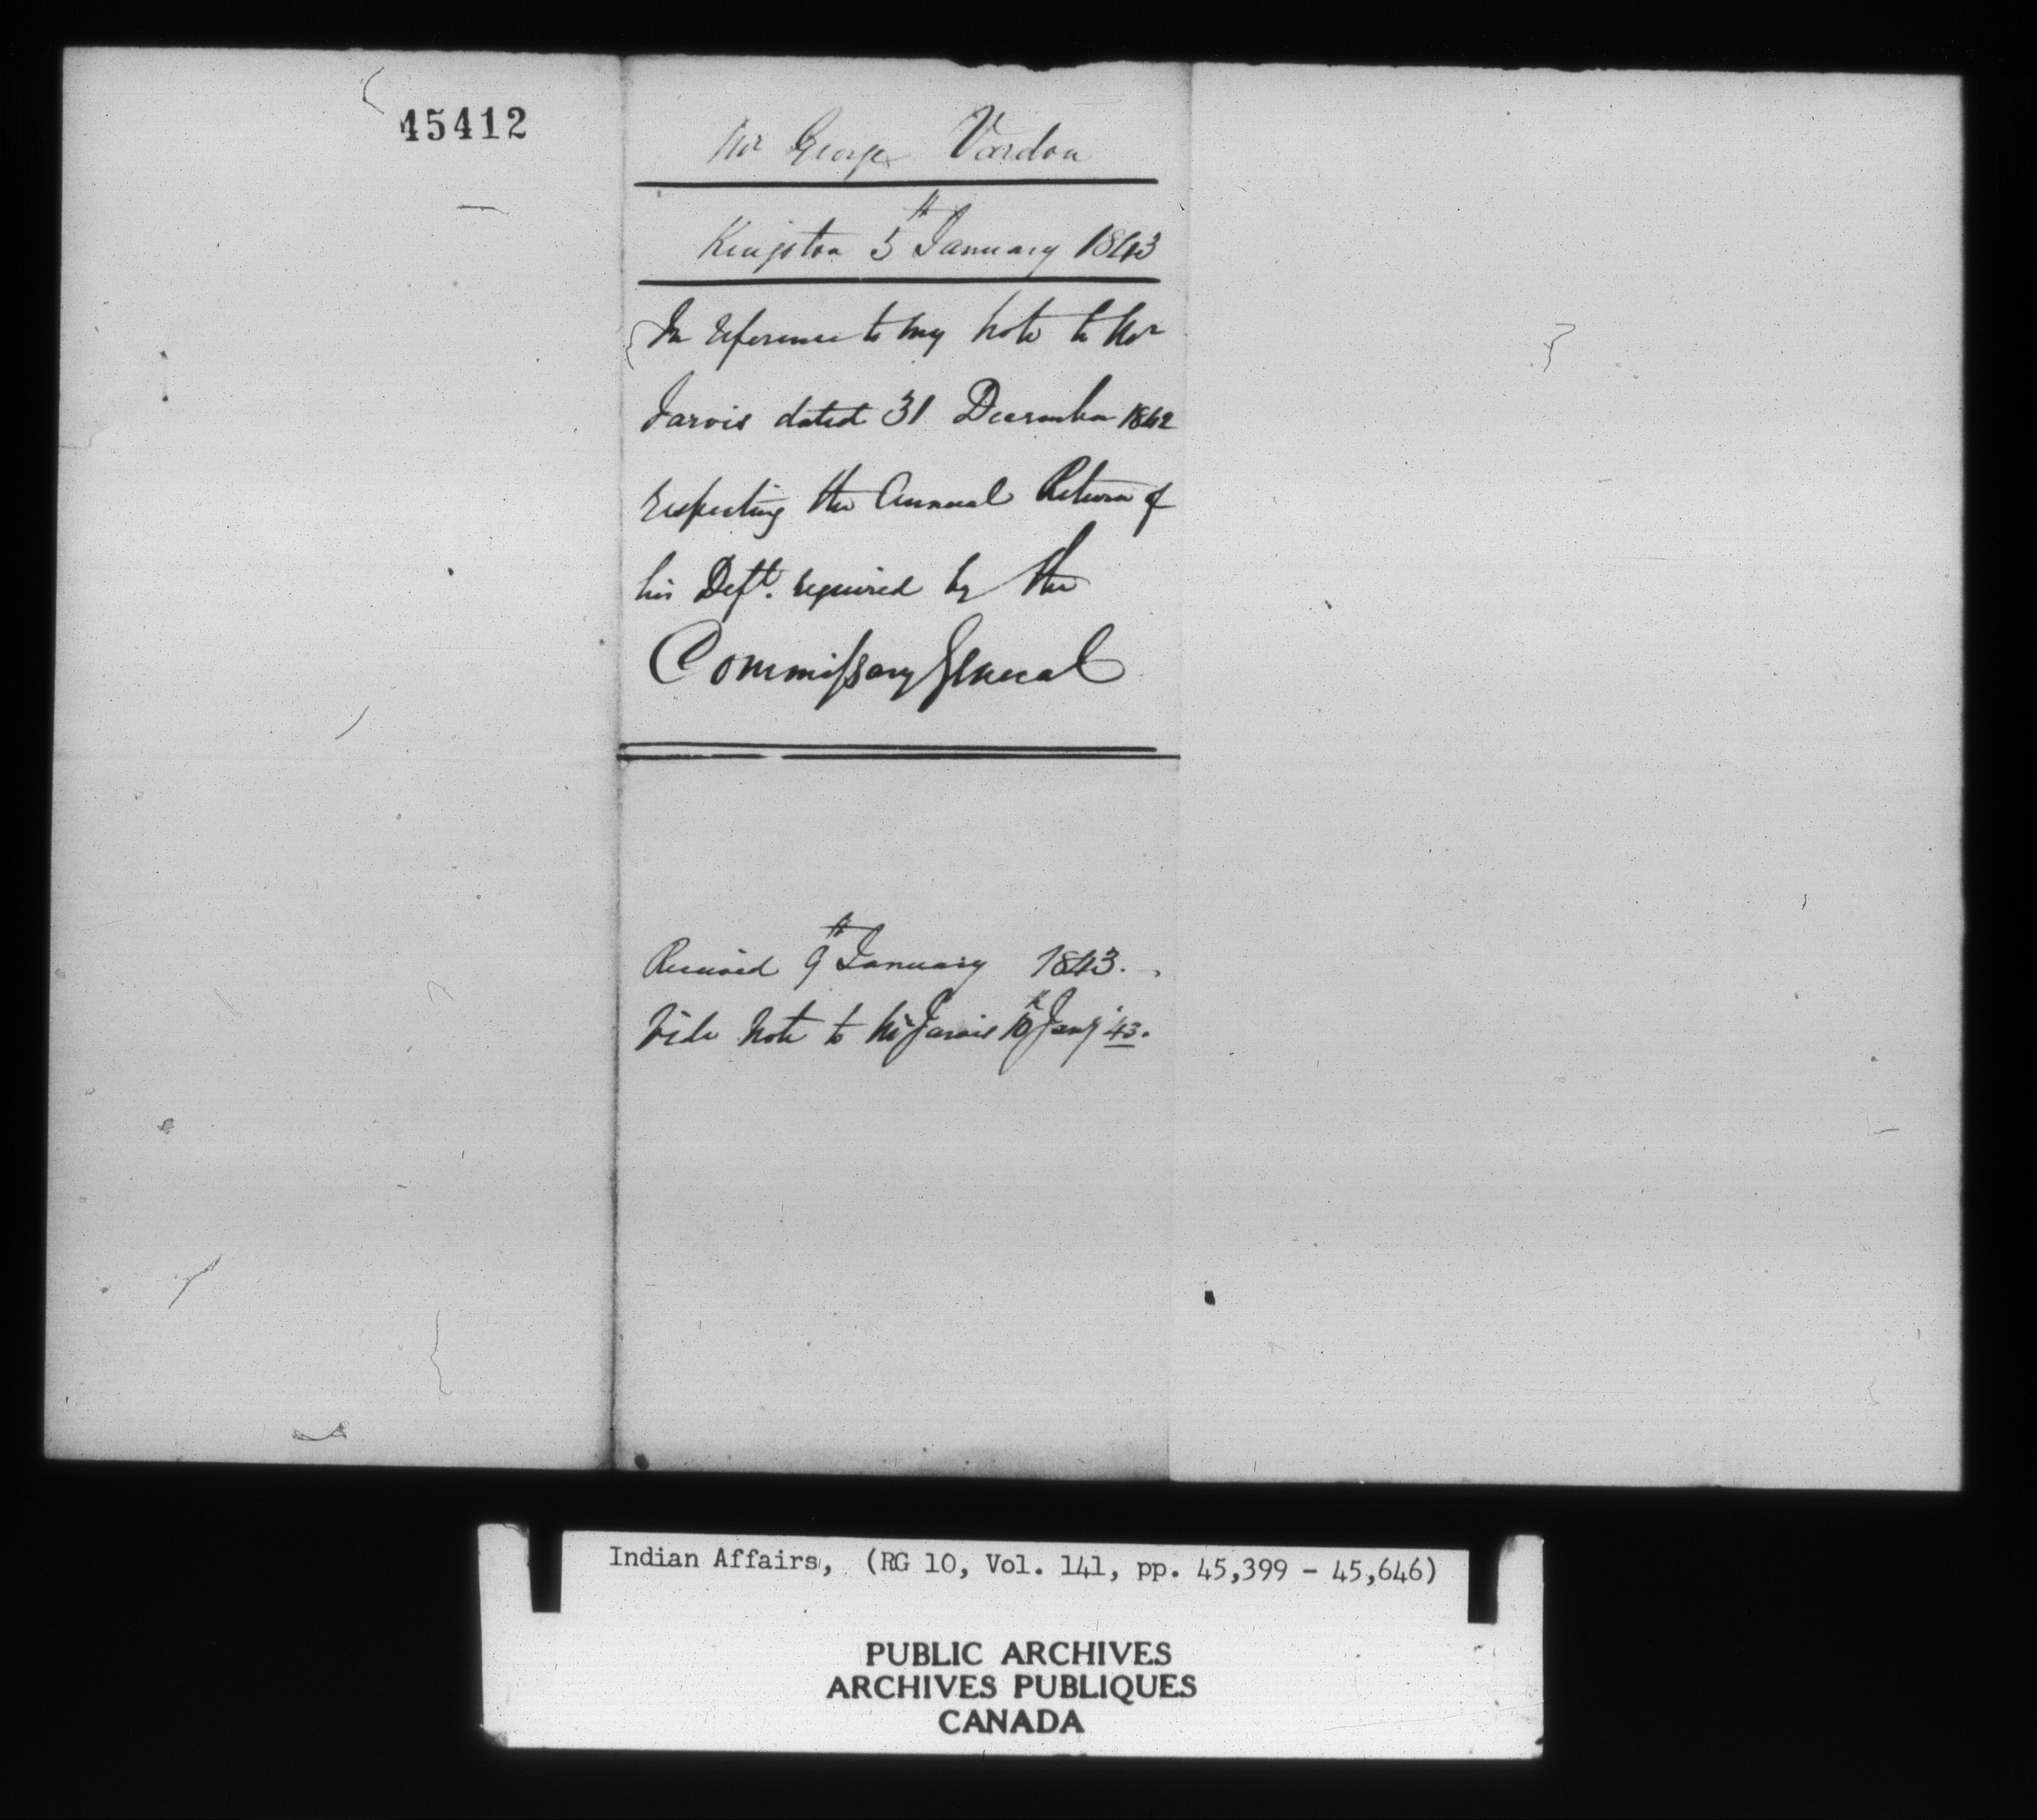 45412
Mr George Vardon
Kingston 5th January 1843
In reference to my note to Mr
Jarvis dated 31 December 1842
respecting the Annual Return of
his Dept. required by the
Commissary General
Received 9th January 1843.
Vide note to Mr Jarvis 10th Jany '43.
Indian Affairs, (RG 10, Vol. 141, pp. 45,399 - 45,646)
PUBLIC ARCHIVES
ARCHIVES PUBLIQUES
CANADA